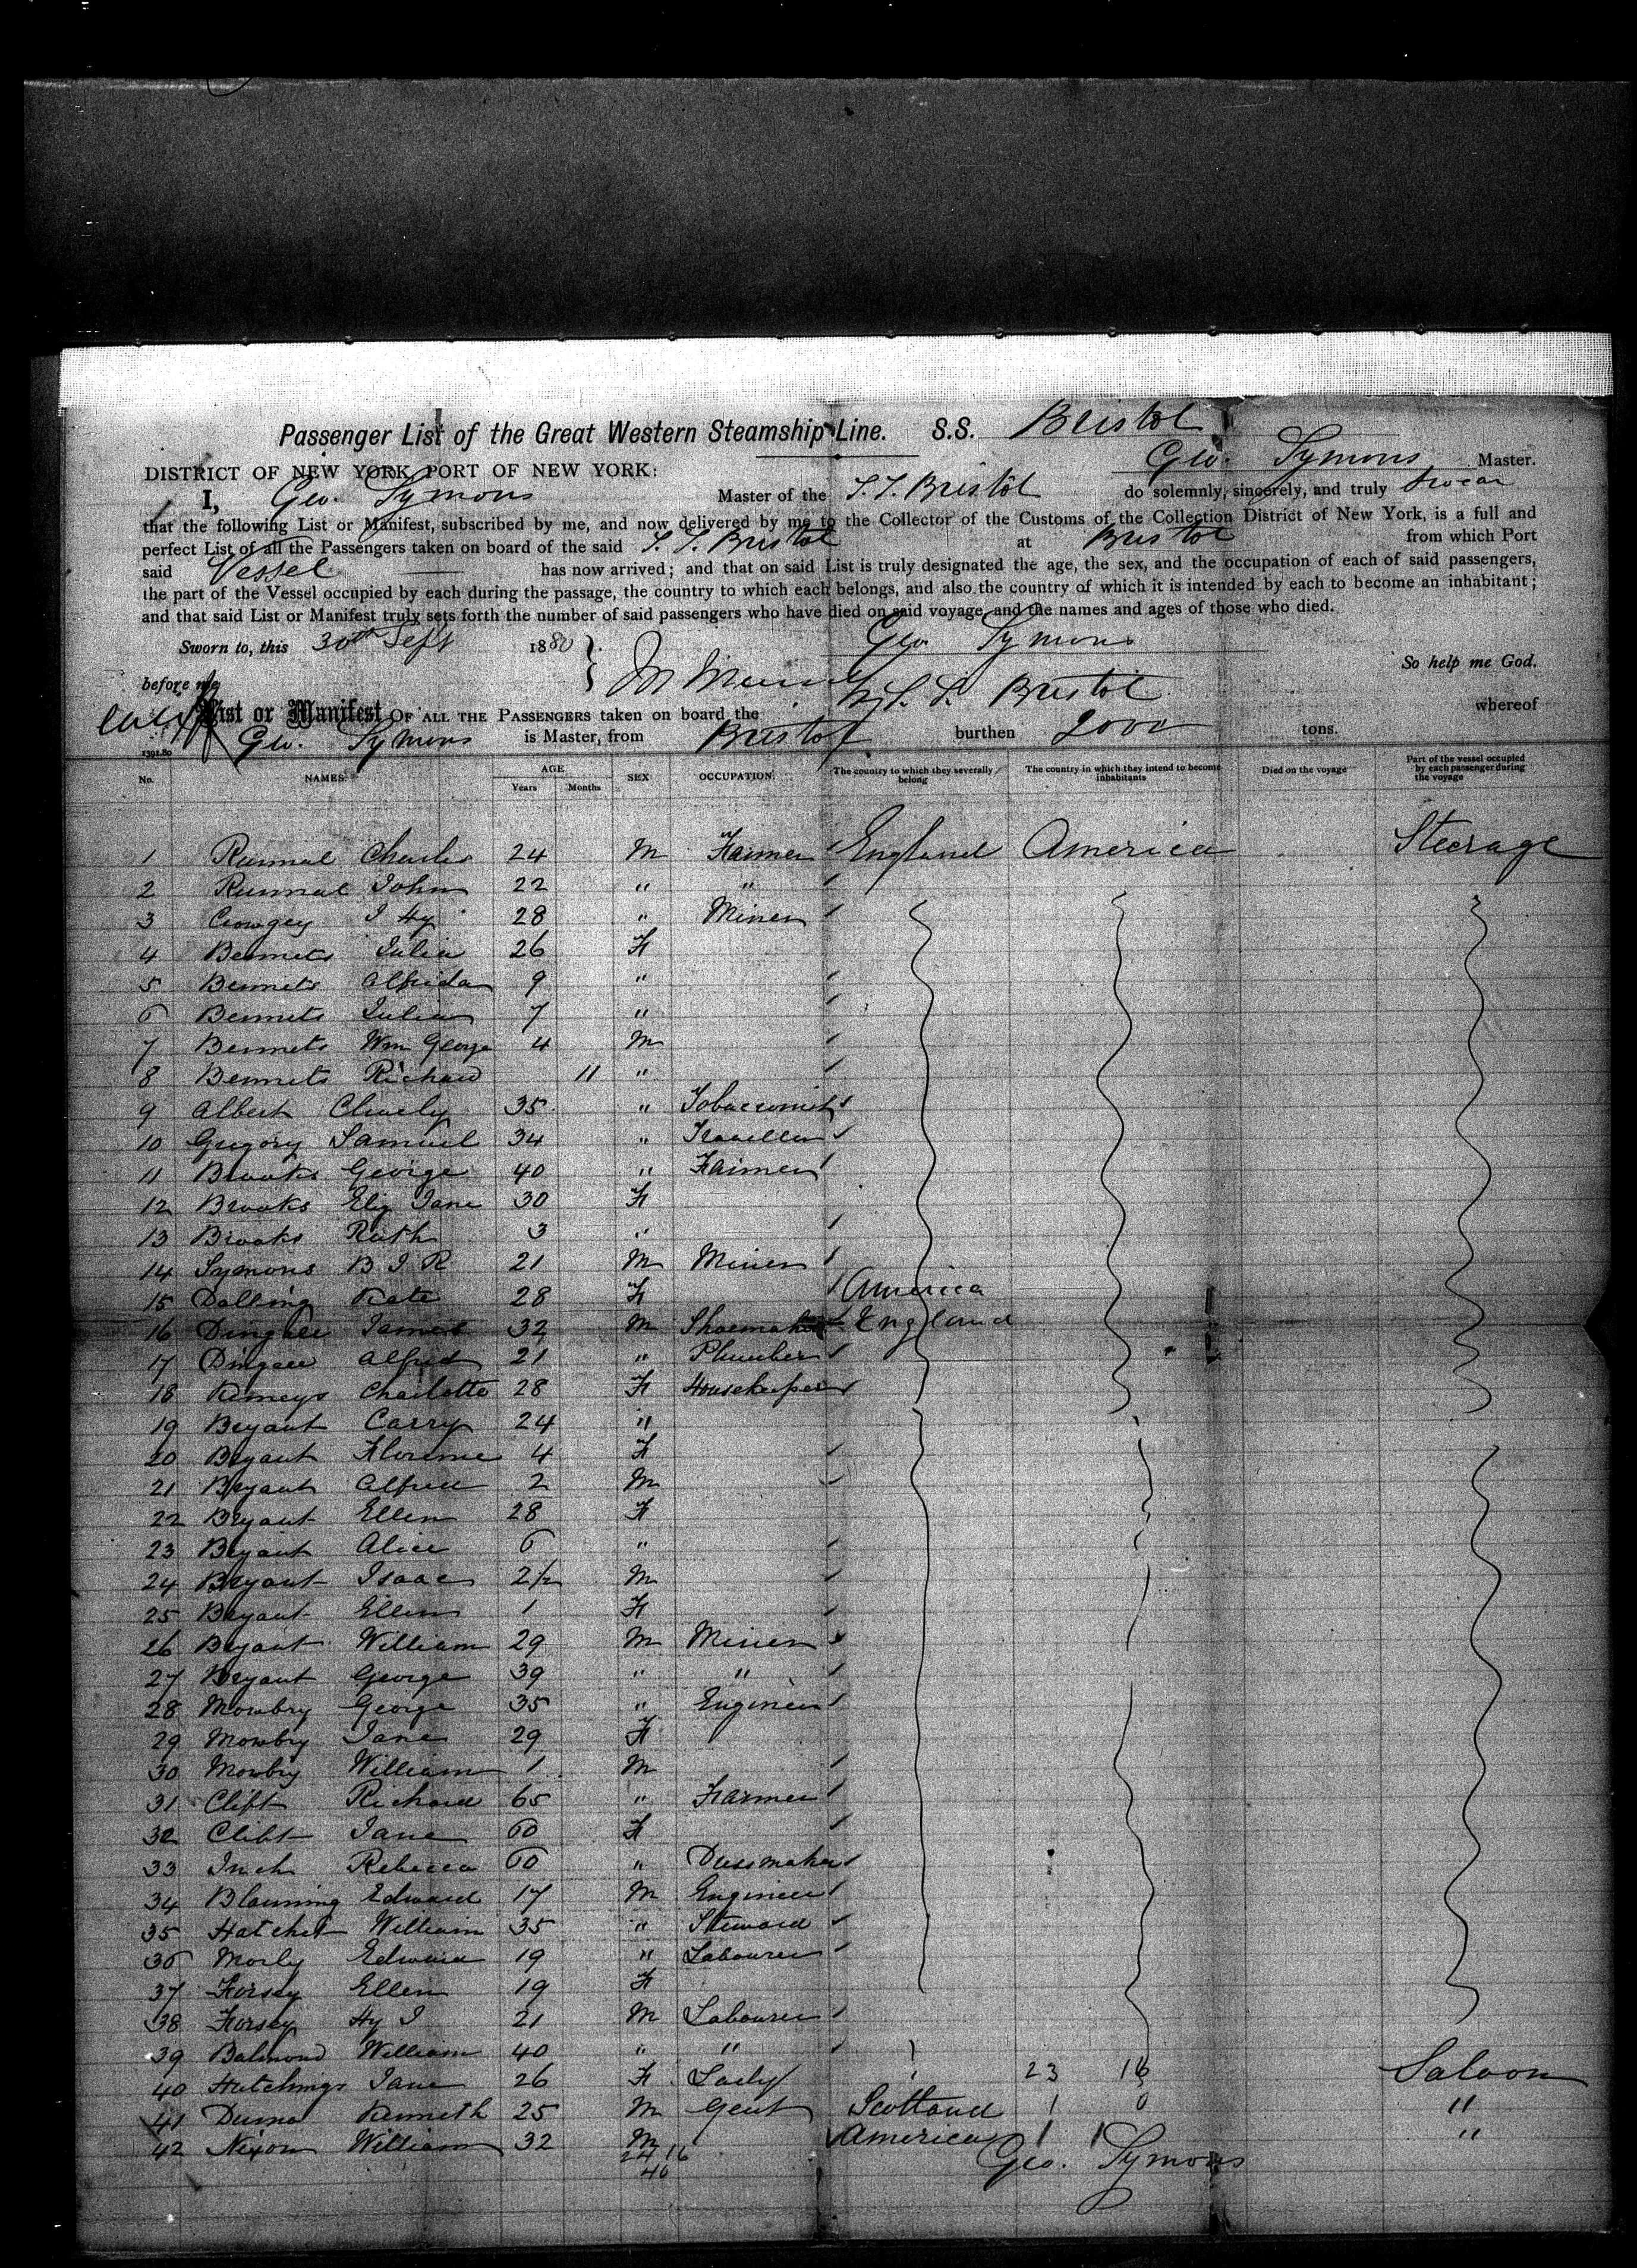 Passenger List of the Great Western Steamship Line. S.S. Bristol
Geo. Symons Master.
DISTRICT OF NEW YORK PORT OF NEW YORK:
I, Geo. Symons Master of the S.S. Bristol do solemnly, sincerely, and truly swear
that the following List or Manifest, subscribed by me, and now delivered by me to the Collector of the Customs of the Collection District of New York, is a full and
perfect List of all the Passengers taken on board of the said S.S. Bristol at Bristol from which Port
said Vessel has now arrived; and that on said List is truly designated the age, the sex, and the occupation of each of said passengers,
the part of the Vessel occupied by each during the passage, the country to which each belongs, and also the country of which it is intended by each to become an inhabitant;
and that said List or Manifest truly sets forth the number of said passengers who have died on said voyage, and the names and ages of those who died.
Sworn to, this 30th Sept 1880 Geo Symons
So help me God.
before me
List or Manifest OF ALL THE PASSENGERS taken on board the S.S. Bristol whereof
Geo. Symons is Master, from Bristol burthen 2000 tons.
1391.80
No. NAMES. AGE Years Months SEX OCCUPATION The country to which they severally belong The country in which they intend to become inhabitants Died on the voyage Part of the vessel occupied by each passenger during the voyage
1 Runnal Charles 24 M Farmer England America Steerage
2 Runnal John 22 " "
3 Crowgey J Hy 28 " Miner
4 Bennets Julia 26 F
5 Bennets Alfrida 9 "
6 Bennets Julia 7 "
7 Bennets Wm George 4 M
8 Bennets Richard 11 "
9 Albert 35 " Tobacconist
10 Gregory Samuel 34 " Traveller
11 Brooks George 40 " Farmer
12 Brooks Eliz Jane 30 F
13 Brooks Ruth 3 "
14 Symons B J R 21 M Miner
15 Dalling Kate 28 F America
16 James 32 M Shoemaker England
17 Alfred 21 " Plumber
18 Charlotte 28 F Housekeeper
19 Bryant Carry 24 "
20 Bryant Florence 4 F
21 Bryant Alfred 2 M
22 Bryant Ellen 28 F
23 Bryant Alice 6 "
24 Bryant Isaac 2½ M
25 Bryant Ellen 1 F
26 Bryant William 29 M Miner
27 Bryant George 39 " "
28 Mowbry George 35 " Engineer
29 Mowbry Jane 29 F
30 Mowbry William 1 M
31 Clift Richard 65 " Farmer
32 Clift Jane 60 F
33 Inch Rebecca 60 " Dressmaker
34 Blanning Edward 17 M Engineer
35 Hatchet William 35 " Steward
36 Morly Edward 19 " Labourer
37 Forsey Ellen 19 F
38 Forsey Hy J 21 M Labourer
39 Balmond William 40 " "
40 Hutchings Jane 26 F Lady 23 16 Saloon
41 Kenneth 25 M Gent Scotland 1 0 "
42 Nixon William 32 M America 1 1 "
24 16
40
Geo. Symons